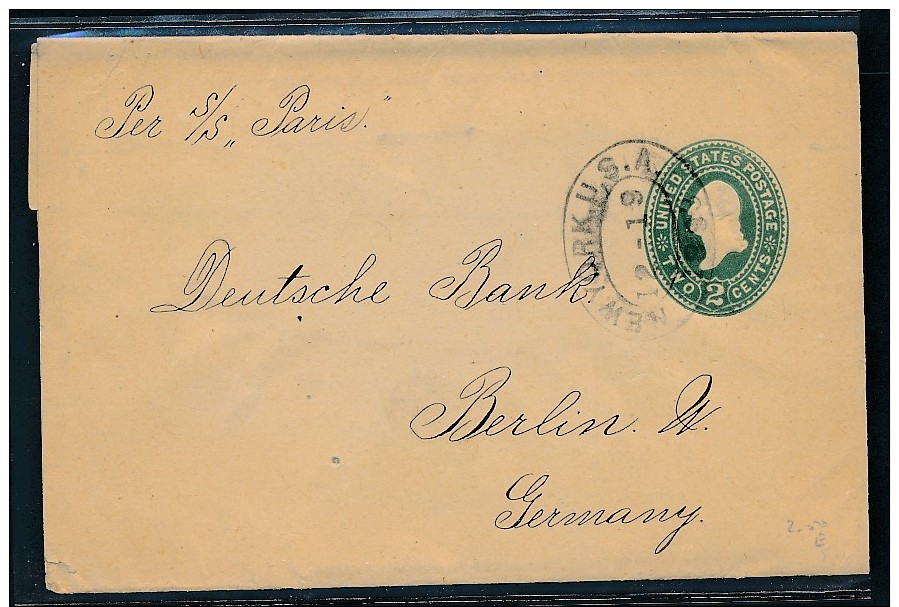 Per S/S „Paris."
UNITED STATES POSTAGE
TWO 2 CENTS
NEW YORK U.S.A.
12-19
Deutsche Bank.
Berlin. W.
Germany.
2.50
E